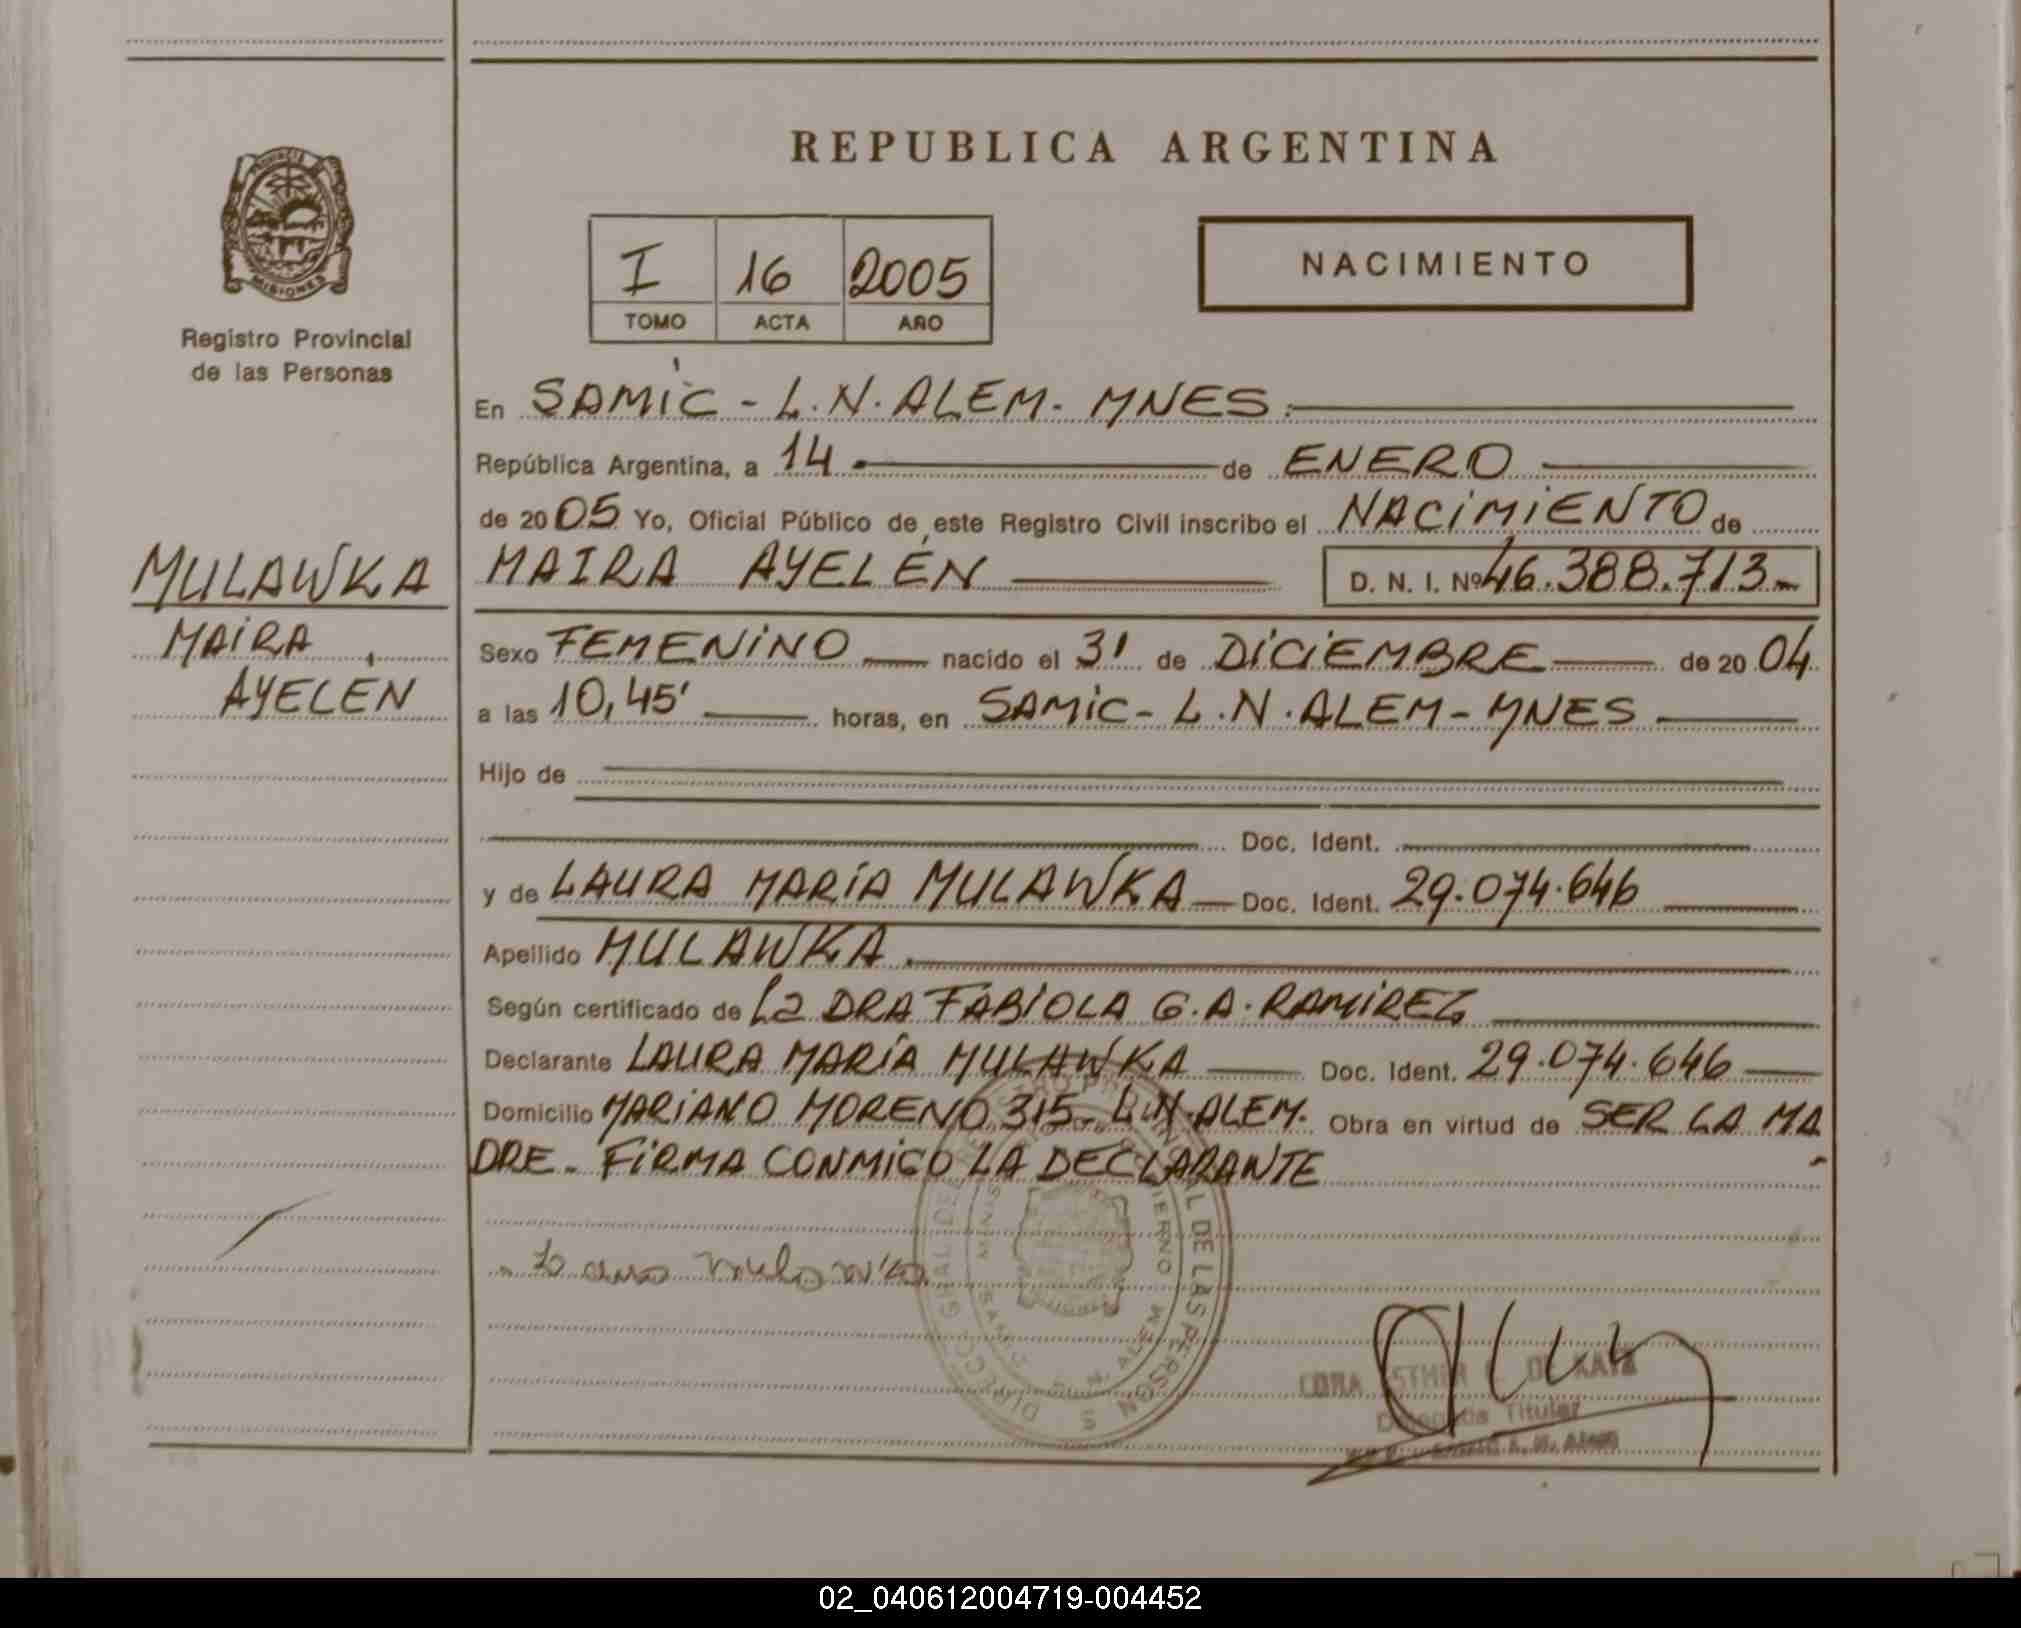 REPUBLICA ARGENTINA
PROVINCIA
MISIONES
Registro Provincial
de las Personas
I 16 2005
TOMO ACTA AÑO
NACIMIENTO
En SAMIC - L.N. ALEM - MNES.
República Argentina, a 14 de ENERO
de 2005 Yo, Oficial Público de este Registro Civil inscribo el NACIMIENTO de
MAIRA AYELÉN D. N. I. Nº 46.388.713
MULAWKA
MAIRA
AYELÉN
Sexo FEMENINO nacido el 31 de DICIEMBRE de 2004
a las 10,45' horas, en SAMIC - L.N. ALEM - MNES
Hijo de
Doc. Ident.
y de LAURA MARÍA MULAWKA Doc. Ident. 29.074.646
Apellido MULAWKA
Según certificado de La DRA FABIOLA G. A. RAMIREZ
Declarante LAURA MARÍA MULAWKA Doc. Ident. 29.074.646
Domicilio MARIANO MORENO 315 - L.N. ALEM. Obra en virtud de SER LA MA
DRE - FIRMA CONMIGO LA DECLARANTE
Titular
02_040612004719-004452